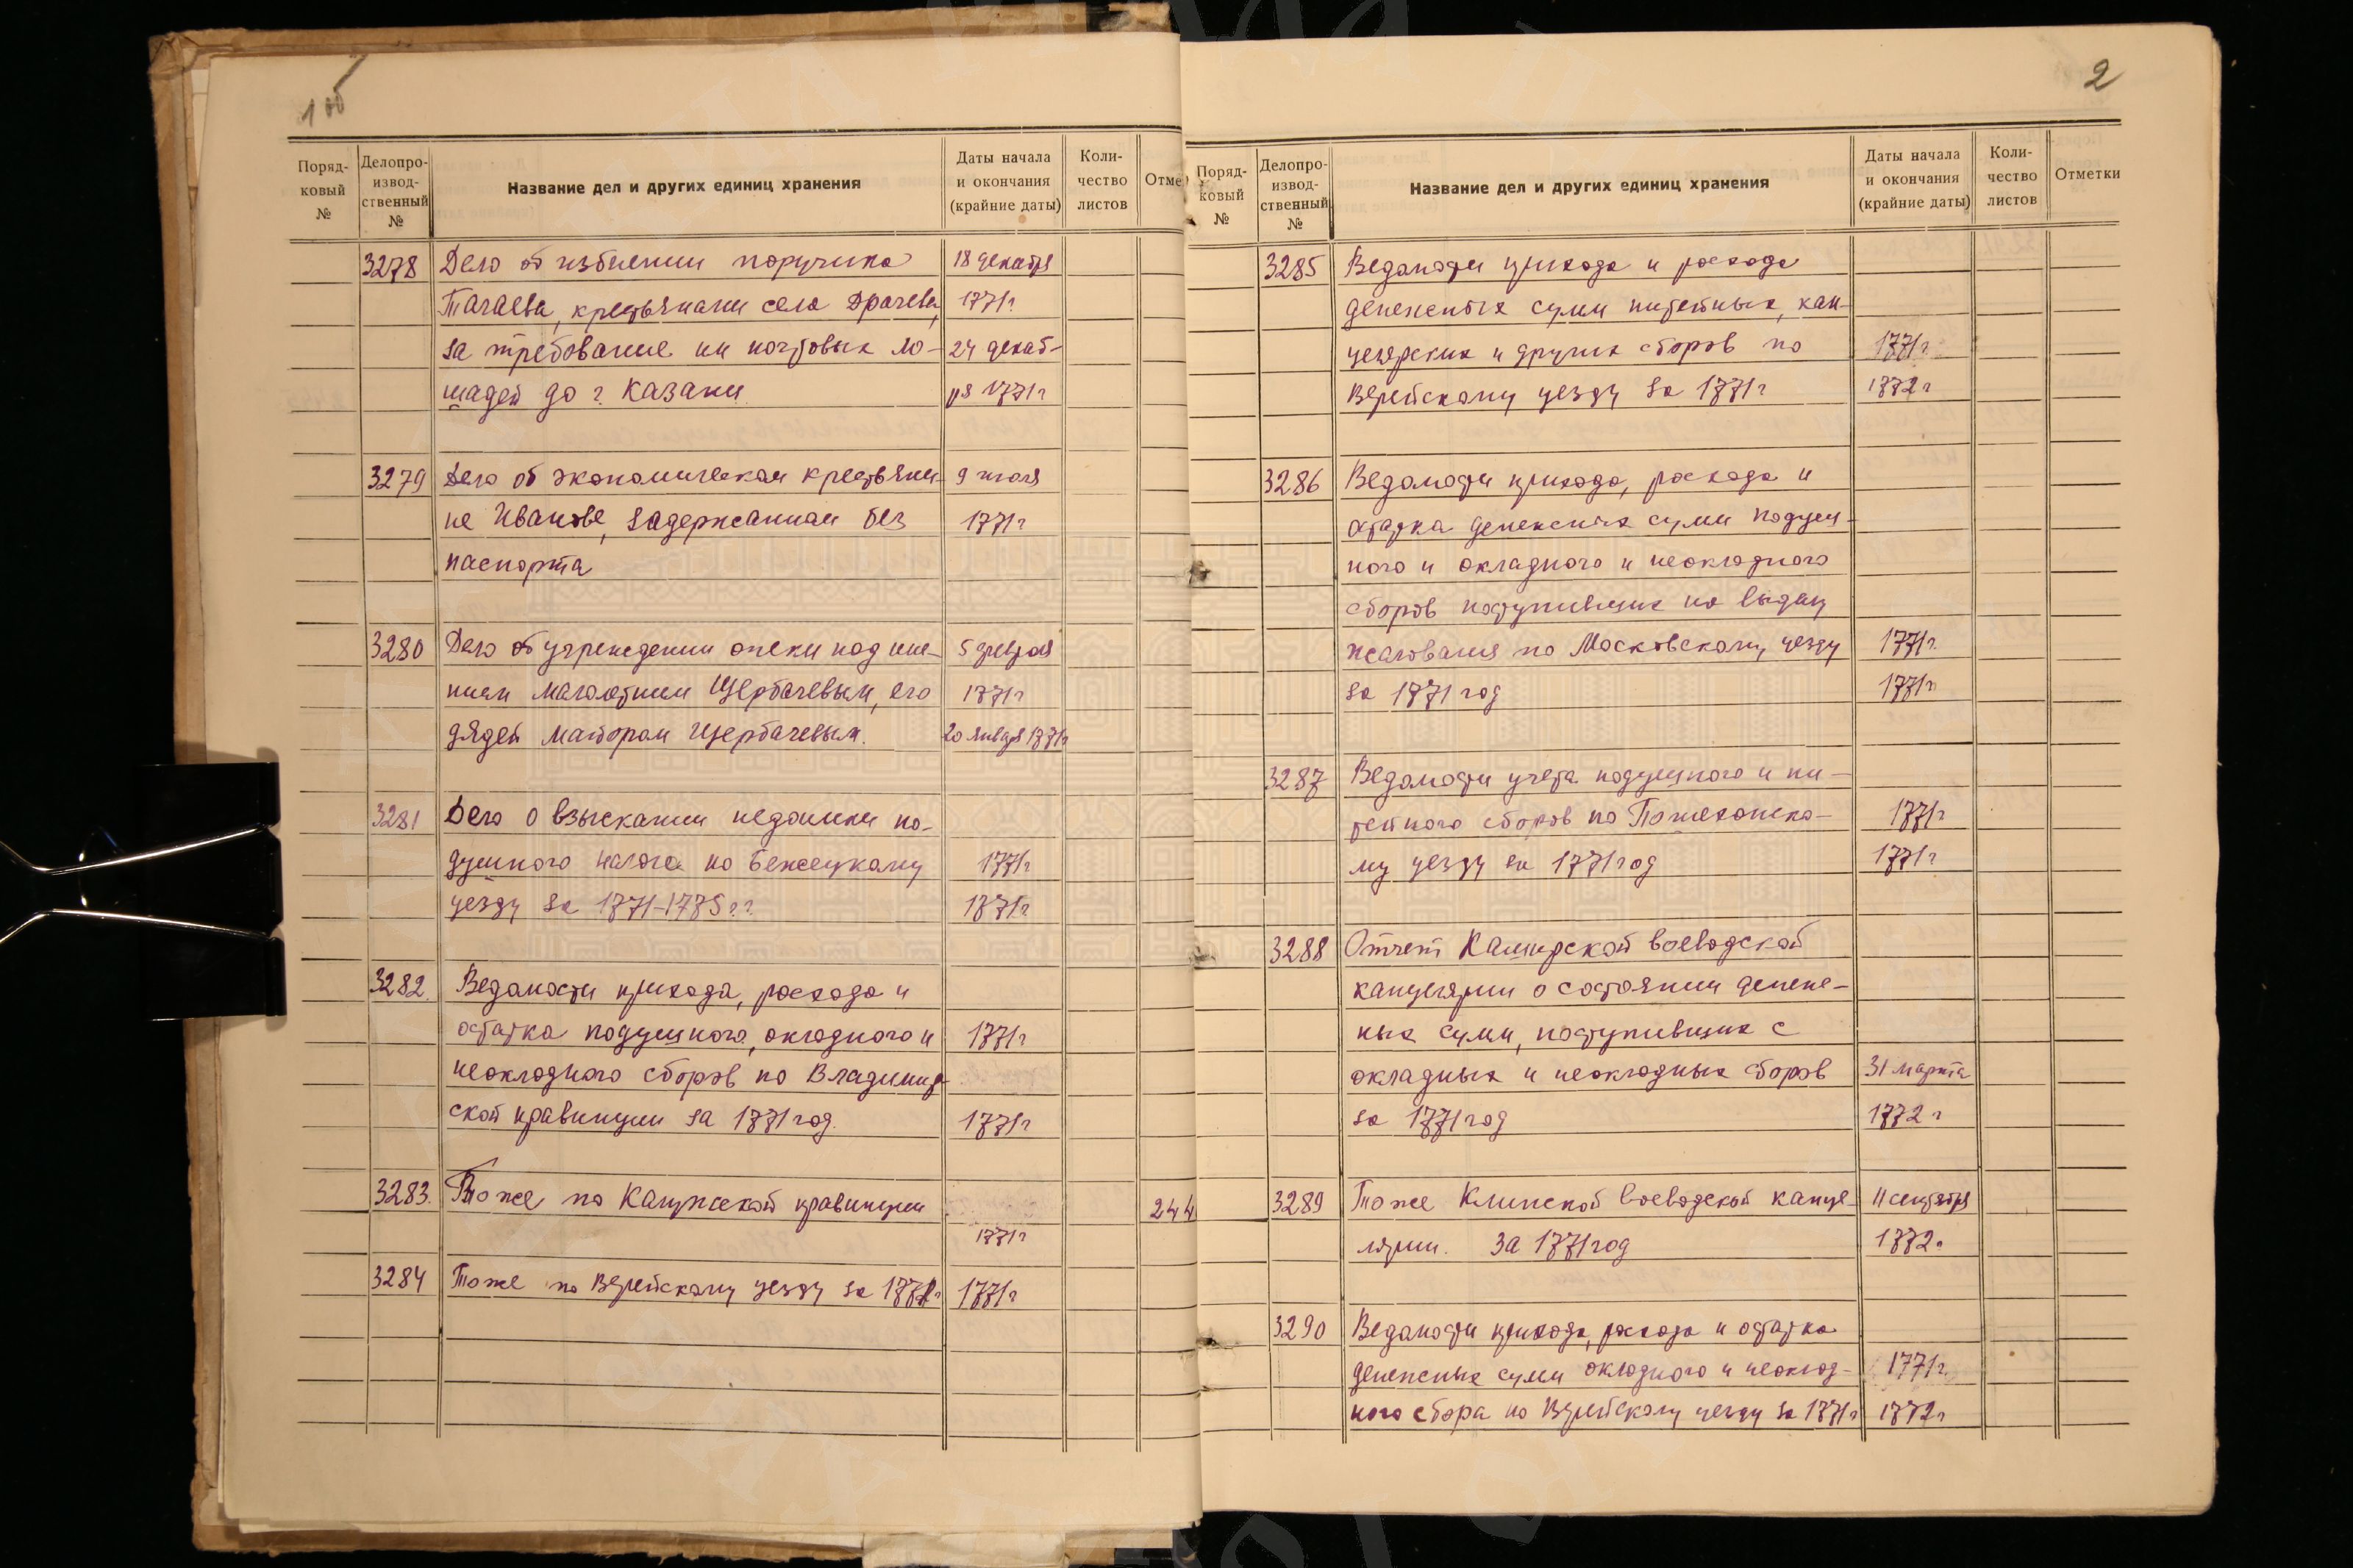 1 об
Поряд-
ковый
№
Делопро-
извод-
ственный
№
Название дел и других единиц хранения
Даты начала
и окончания
(крайние даты)
Коли-
чество
листов
Отме
3278 Дело об избиении поручика 18 декабря
Тагаева, крестьянами села Драчева, 1771г.
за требование им почтовых ло- 24 декаб-
шадей до г. Казани ря 1771г
3279 Дело об экономическом крестьяни- 9 июля
не Иванове, задержанном без 1771г
паспорта
3280 Дело об учреждении опеки над име-
нием малолетним Щербачевым, его 1771г
дядей майором Щербачевым. 20 января 1771г
3281 Дело о взыскании недоимки по-
душного налога по Бежецкому 1771г
уезду за 1771-1775гг. 1771г
3282. Ведомости прихода, расхода и
остатка подушного, окладного и 1771г
неокладного сборов по Владимир-
ской провинции за 1771 год. 1771г
3283. Тоже по Калужской провинции 244
1771г
3284 Тоже по Верейскому уезду за 1771г 1771г
2
Поряд-
ковый
№
Делопро-
извод-
ственный
№
Название дел и других единиц хранения
Даты начала
и окончания
(крайние даты)
Коли-
чество
листов
Отметки
3285 Ведомости прихода и расхода
денежных сумм питейных, кан-
целярских и других сборов по 1771г
Верейскому уезду за 1771г 1772г
3286 Ведомости прихода, расхода и
остатка денежных сумм подуш-
ного и окладного и неокладного
сборов поступивших на выдачу
жалования по Московскому уезду 1771г.
за 1771 год 1771г
3287 Ведомости учета подушного и пи-
тейного сборов по Пошехонско- 1771г
му уезду за 1771 год 1771г
3288 Отчет Каширской воеводской
канцелярии о состоянии денеж-
ных сумм, поступивших с
окладных и неокладных сборов 31 марта
за 1771 год 1772г
3289 Тоже Клинской воеводской канце- 11 сентября
лярии. За 1771 год 1772г
3290 Ведомости прихода, расхода и остатка
денежных сумм окладного и неоклад- 1771г.
ного сбора по Верейскому уезду за 1771г 1772г